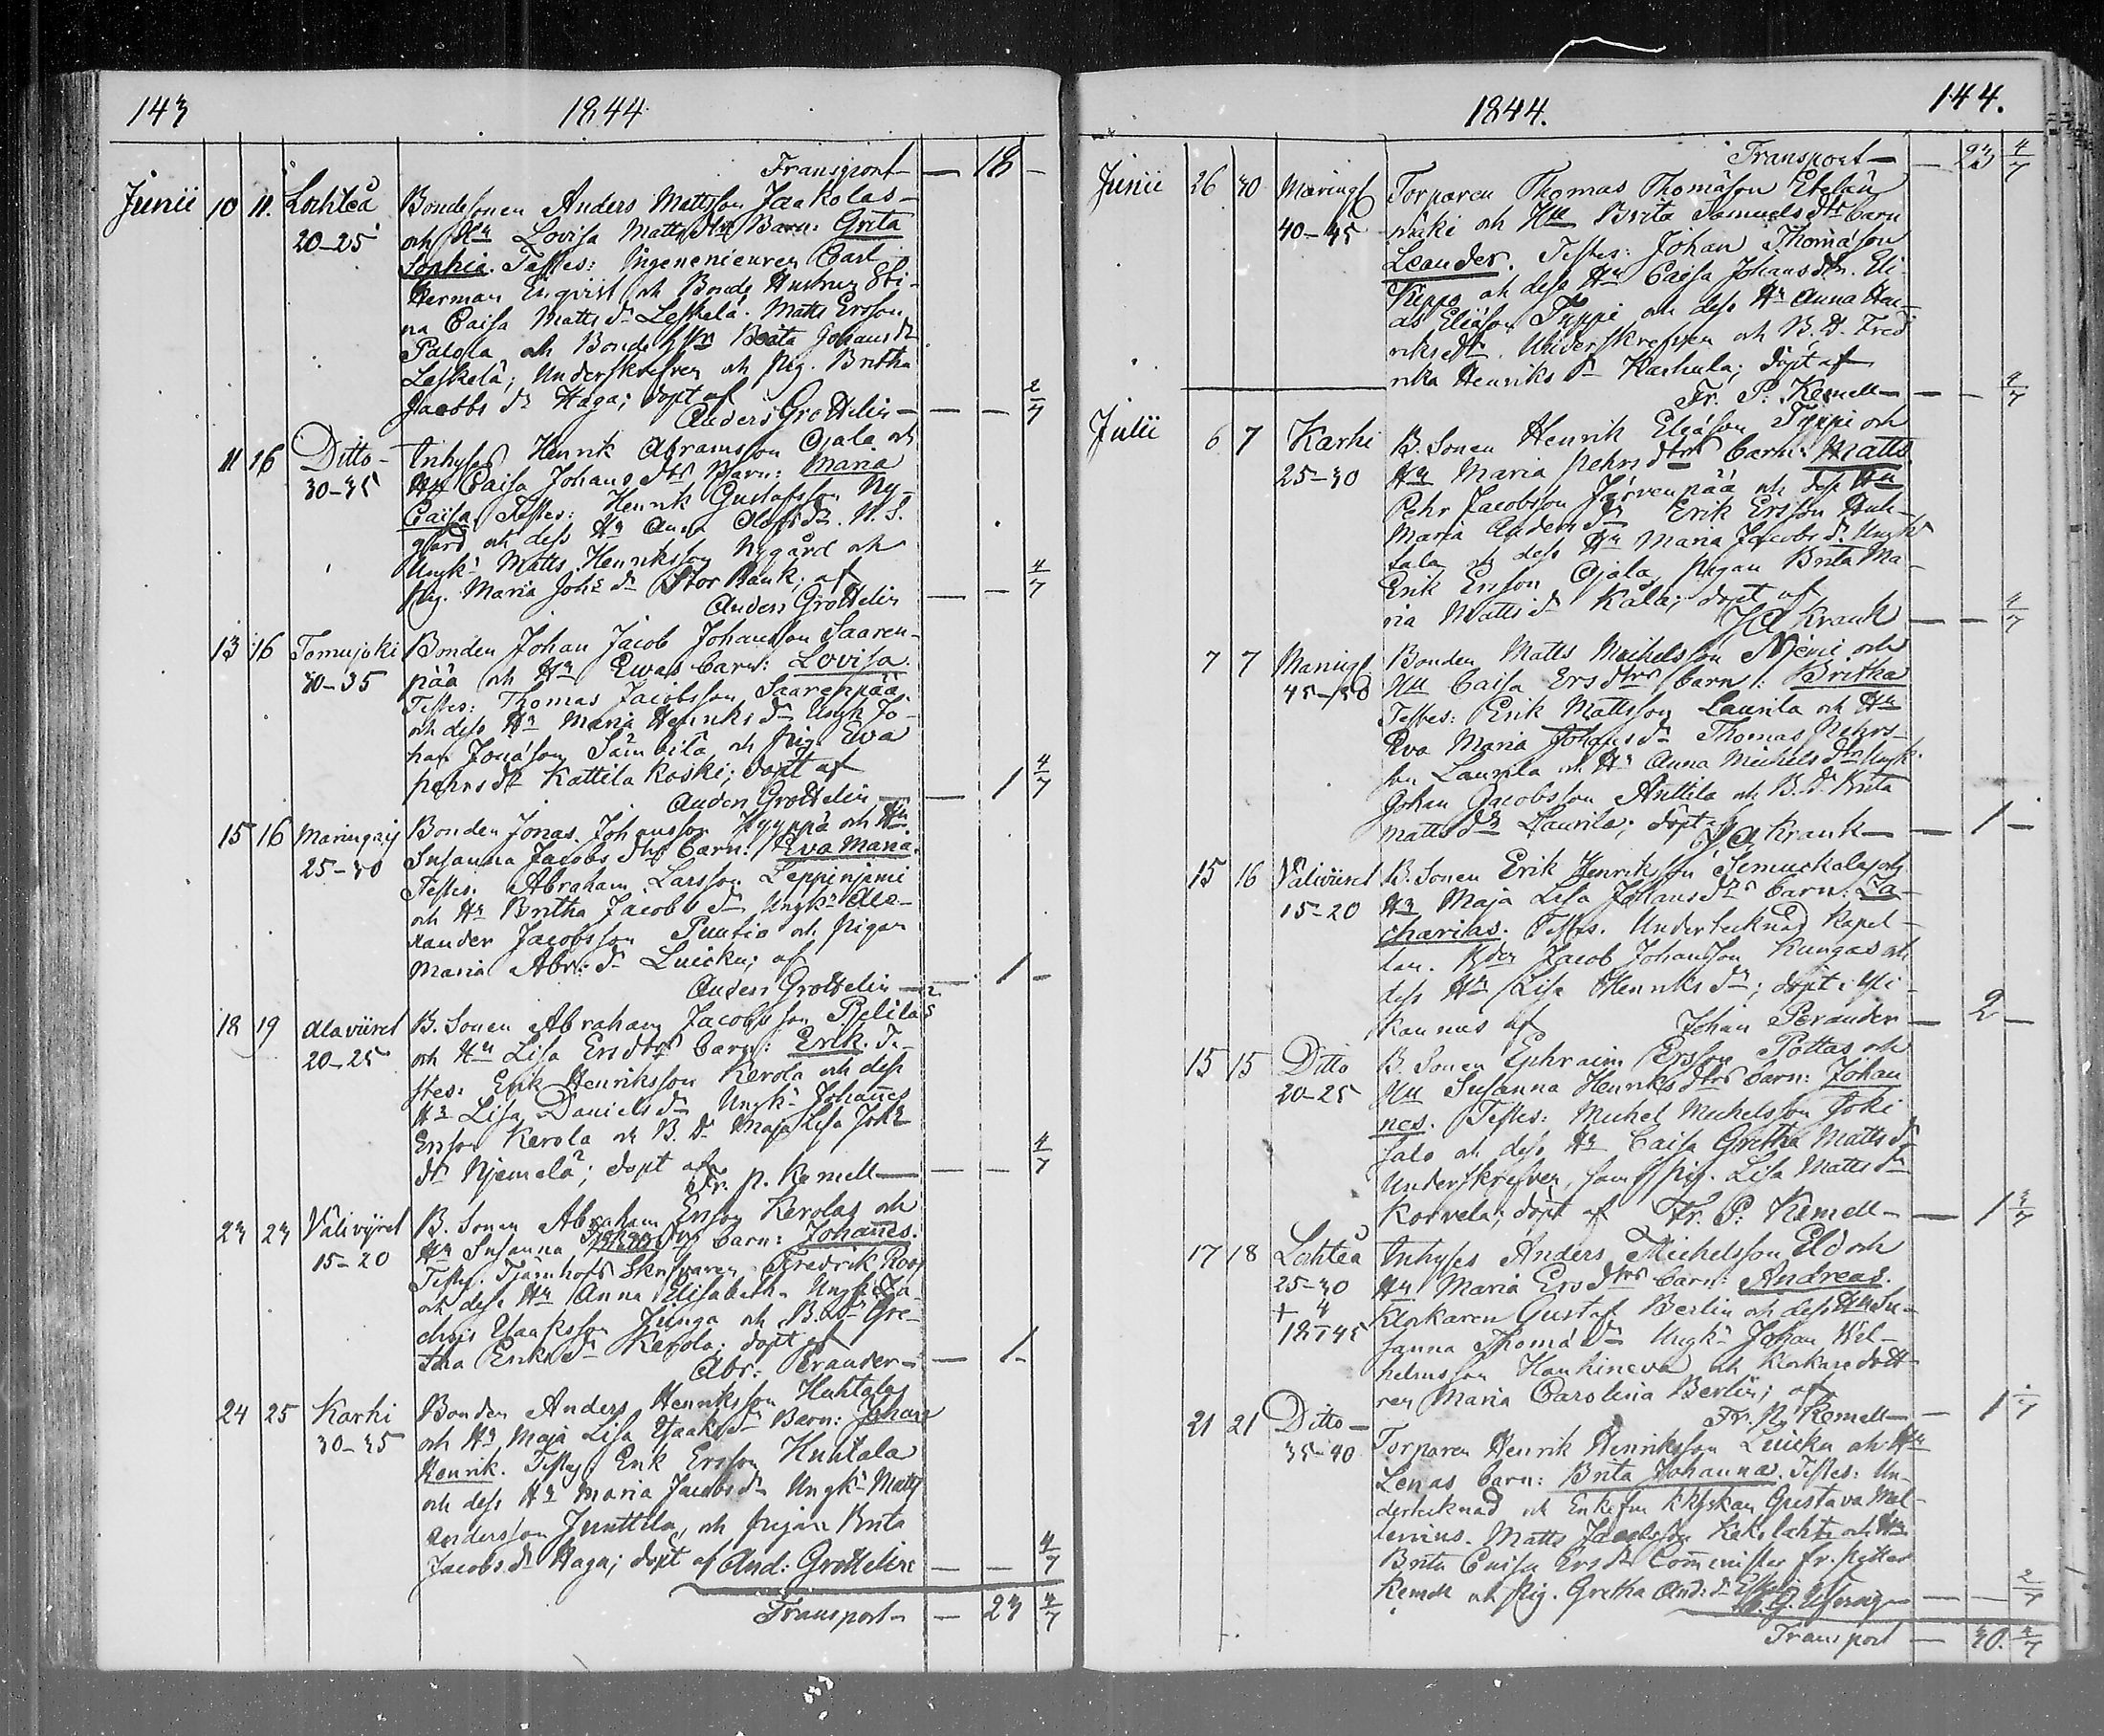 143 1844
Transport — 18 —
Junii 10 11. Lochteå Bondesonen Anders Mattsson Jaakolas
20-25 och Hu Lovisa Mattsdtrs Barn: Greta
Sophia. Testes: Ingenieuren Carl
Herman Enqvist och Bonde Hustrun Sti-
na Caisa Matts dr Leskelä. Matts Ersson
Palola och Bonde Hu Beata Johans dr
Leskelä; Underskrefven och Pig. Britha
Jacobs dr Haga; döpt af
Anders Grottelin — — 2/7
11 16 Ditto Inhyses Henrik Abramsson Ojala och
30-35 Hu Caisa Johans dtrs Barn: Maria
Caisa. Testes: Henrik Gustafsson Ny-
gård och dess Hu Anna Olofs dr. N.S.
Ungk. Matts Henriksson Nygård och
Pig. Maria Joh: dr Stor Bank; af
Anders Grottelin — — 4/7
13 16 Tomujoki Bonden Johan Jacob Johansson Saaren-
30-35 pää och Hu Ewas barn: Lovisa.
Testes: Thomas Jacobsson Saarenpää
och dess Hu Maria Henriks dr Ungk Jo-
han Jonasson och Pig. Eva
Pehrs dr Kattilakoski; döpt af
Anders Grottelin — 1 4/7
15 16 Maringais Bonden Jonas Johansson Kyyppä och Hu
25-30 Susanna Jacobs dtrs barn: Eva Maria.
Testes. Abraham Larsson Leppiniemi
och Hu Britha Jacobs dr Ungk: Ale-
xander Jacobsson Puutio och Pigan
Maria Abr: dr Luicku; af
Anders Grottelin — 1 —
18 19 Alaviiret B. Sonen Abraham Jacobsson Pielilas
20-25 och Hu Lisa Ersdtrs barn: Erik. Te-
stes: Erik Henriksson Kerola och dess
Hu Lisa Daniels dr Ungk: Johannes
Ersson Kerola och B. Dr Maja Lisa Joh:
dr Njemelä; döpt af
Fr. P. Kemell — — 4/7
23 23 Välivyret B. Sonen Abraham Ersson Kerolas och
15-20 Hu Susanna barn: Johannes.
Testes. Tjärnhofs Skrifvaren Fredrik Roos
och dess Hu Anna Elisabeth. Ungk: Za-
chris Isaksson Junga och B. Dr Gre-
tha Eriks dr Kerola; döpt af
Abr: Perander — 1 —
24 25 Karhi Bonden Anders Henriksson Huhtalas
30-35 och Hu Maja Lisa Isaks dr Barn: Johan
Henrik. Testes Erik Ersson Huhtala
och dess Hu Maria Jacobs dr Ungk: Matts
Andersson Junttila, och Pigan Brita
Jacobs dr Haga; döpt af And: Grottelin — — 4/7
Transport — 23 4/7
1844. 144.
Transport — — 23 4/7
Junii 26 30 Marings Torparen Thomas Thomasson Etelä
40-45 mäki och Hu Brita Samuels dtrs barn
Leander. Testes: Johan Thomasson
Keppo och dess Hu Caisa Johansdtr. Eli-
as Eliasson Typpi och dess Hu Anna Hen-
riks dtr. Underskrefven och B. Dr Fred
rika Henriks dr Karhula; döpt af
Fr. P. Kemell — — 4/7
Julii 6 7 Karhi B. Sonen Henrik Eliasson Typpi och
25-30 Hu Maria Pehrs dtrs barn: Matts.
Pehr Jacobsson Järvenpää och dess Hu
Maria Anders dr Erik Ersson Huh-
tala och dess Hu Maria Jacobs dr. Ungk
Erik Ersson Ojala, Pigan Brita Ma-
ria Matts dr Kåla; döpt af
J A Krank — — 4/7
7 7 Marings Bonden Matts Michelsson Njemi och
45-50 Hu Caisa Ersdtrs barn: Britha
Testes: Erik Mattsson Laurila och Hu
Eva Maria Johans dr Thomas Pehrs-
son Laurila och Hu Anna Michels dtr Ungk.
Johan Jacobsson Anttila och B. Dr Brita
Matts dr Laurila; döpt af J A Krank — 1 —
15 16 Väliviiret B. Sonen Erik Henriksson och
15-20 Hu Maja Lisa Johansdtrs barn: Za-
charias. Testes. Undertecknad Kapel-
lan. Jacob Johansson Kungas och
dess Hu Lisa Henriks dr; döpt i Yli-
kannus af Johan Perander — 2 —
15 15 Ditto B. Sonen Ephraim Ersson Pottas och
20-25 Hu Susanna Henriks dtrs barn: Johan
nes. Testes: Michel Michelsson Joki
salo och dess Hu Caisa Gretha Matts dr
Underskrefven, samt Pig. Lisa Matts dr
Korvela, döpt af Fr. P. Kemell — 1 3/7
17 18 Lohteå Inhyses Anders Michelsson Eld och
25-30 Hu Maria Ersdtrs barn: Andreas.
+ 4 Klockaren Gustaf Berlin och dess Hu Su-
18 7 45 sanna Thoma dr Ungk: Johan Wil-
helmsson Hanhineva och Klockaredott-
ren Maria Carolina Berlin; af
Fr. P. Kemell — 1 1/7
21 21 Ditto Torparen Henrik Henriksson Luicku och Hu
35-40 Lenas barn: Brita Johanna. Testes: Un-
dertecknad och Enkefru Gustava Mol-
lerius. Matts Jacobsson Kekolahti och Hu
Brita Caisa Ers dr Comminister Fr. Petter
Kemell och Pig. Gretha And: dr
— — 2/7
Transport — 30. 4/7